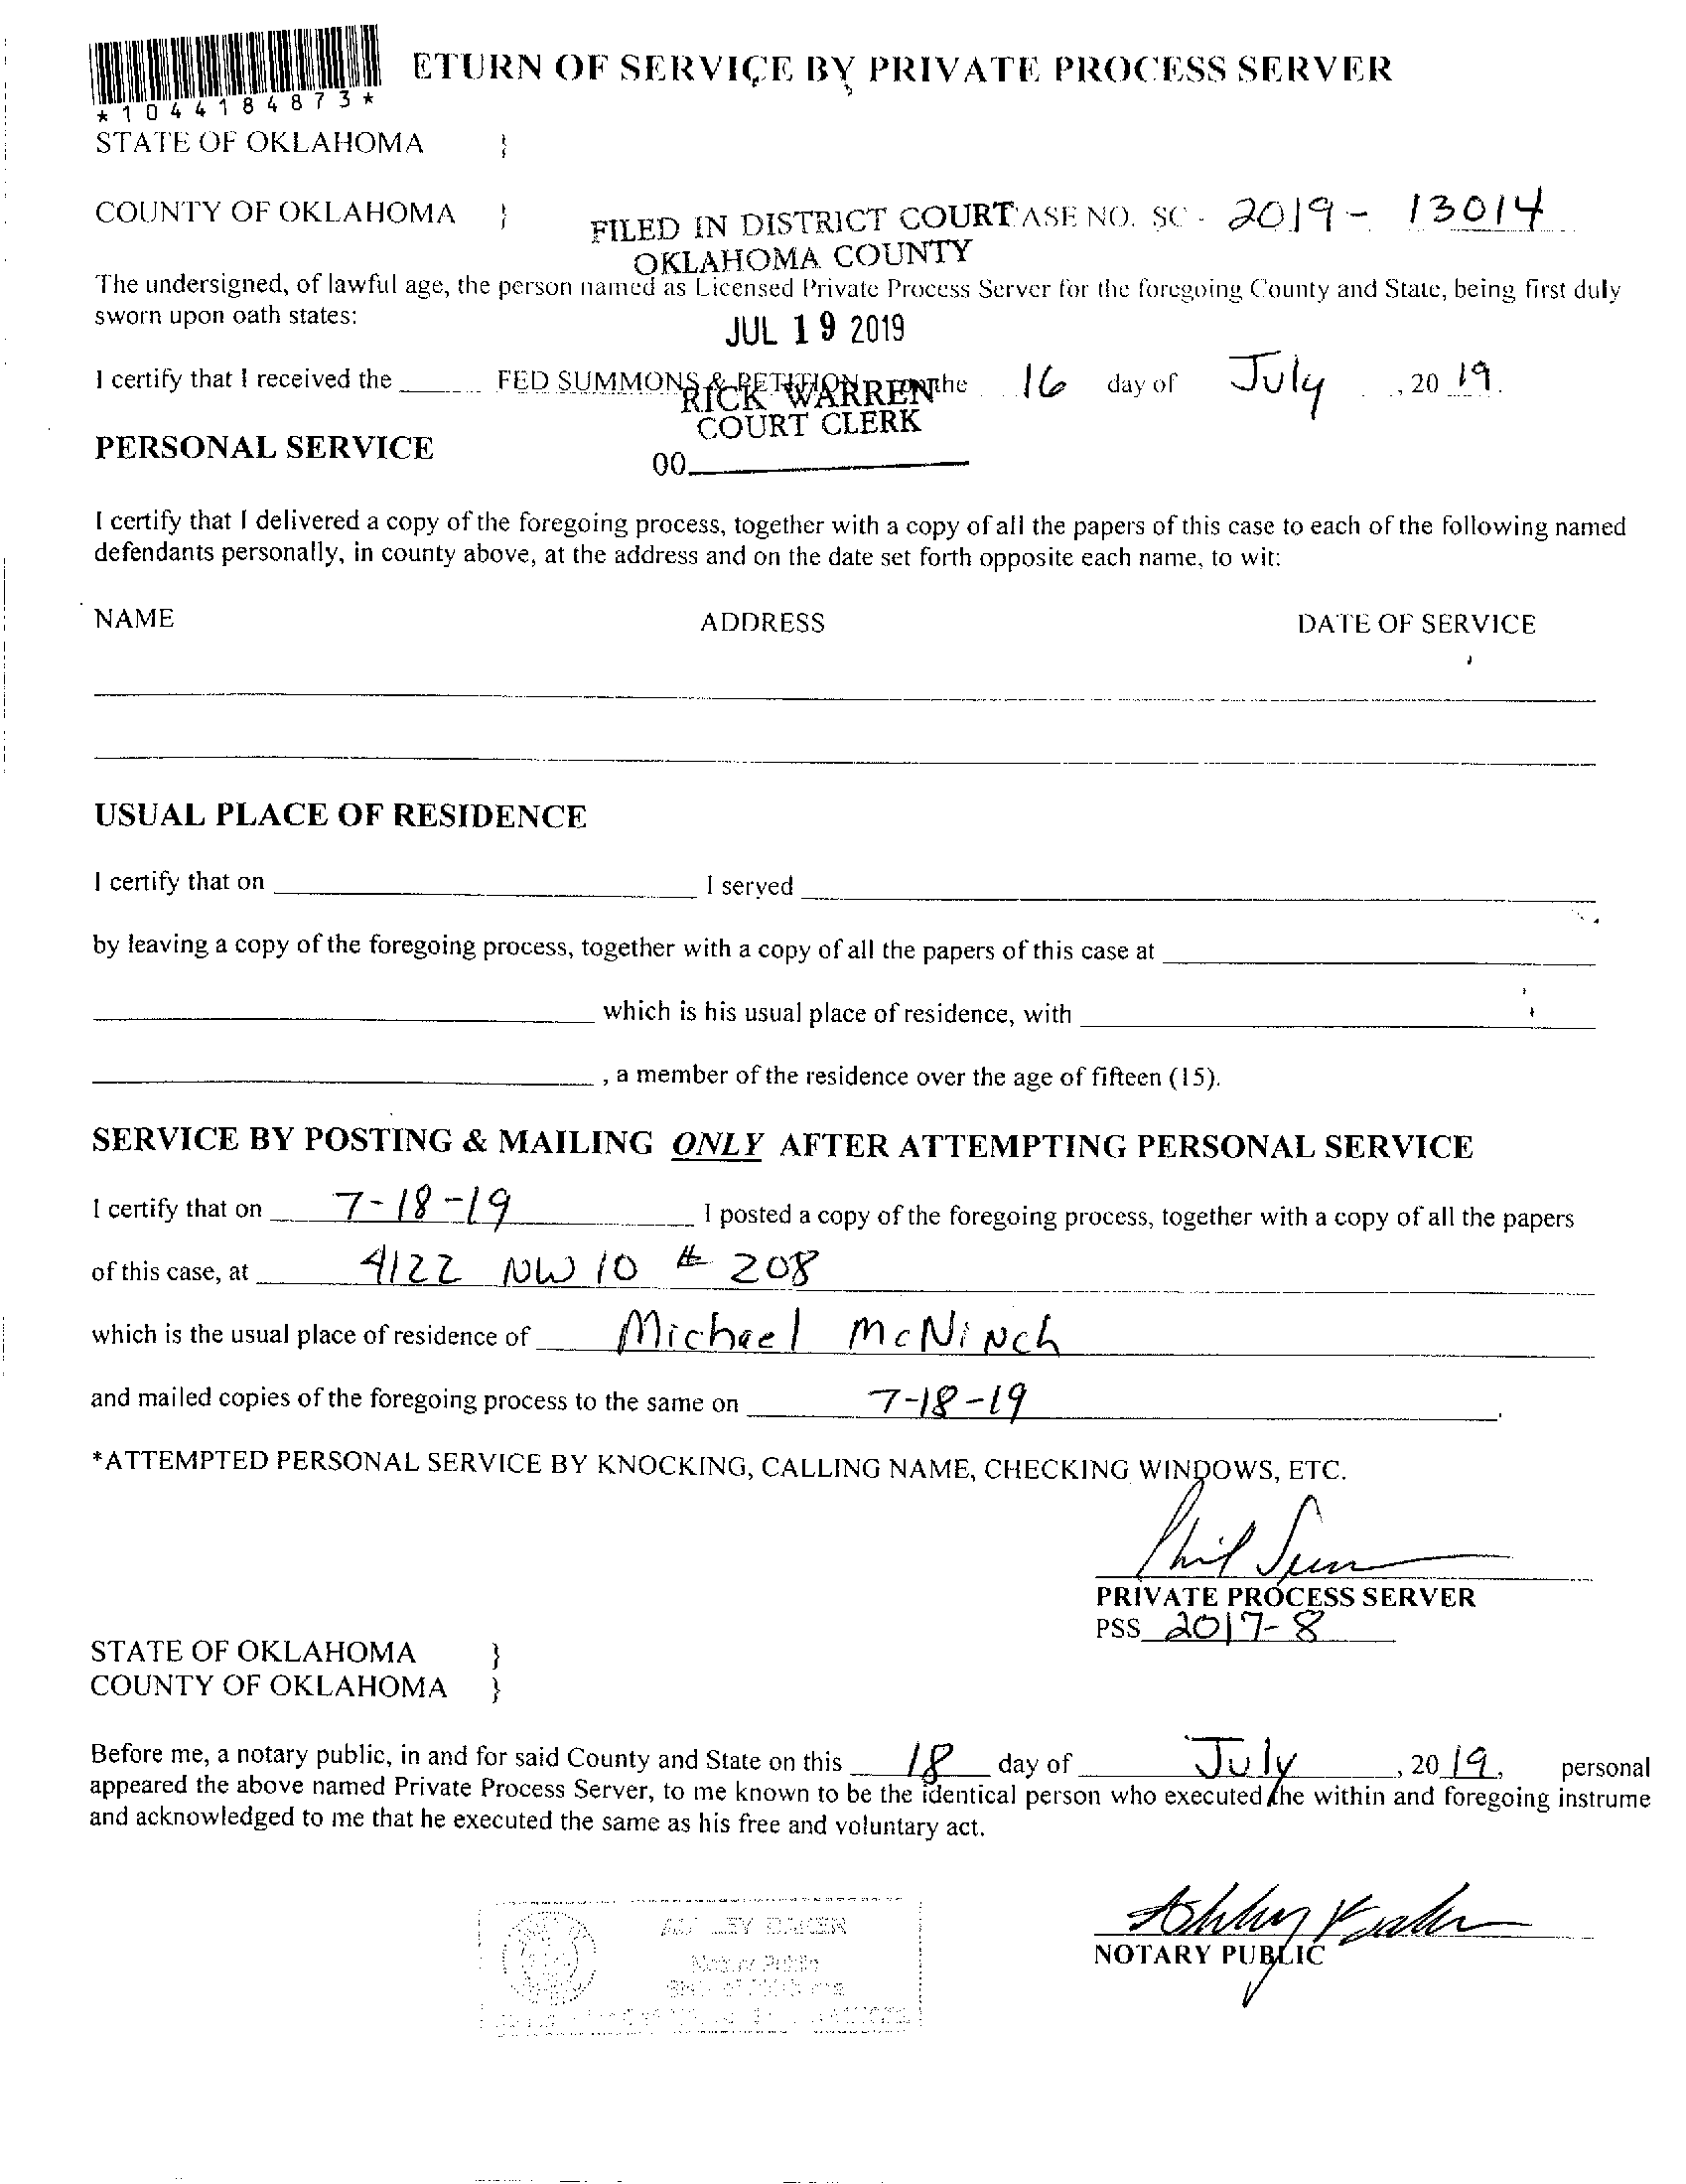 *1044184873*
ETURN OF SERVICE BY PRIVATE PROCESS SERVER
STATE OF OKLAHOMA }
COUNTY OF OKLAHOMA }
FILED IN DISTRICT COURT ASE NO. SC - 2019 - 13014
OKLAHOMA COUNTY
The undersigned, of lawful age, the person named as Licensed Private Process Server for the foregoing County and State, being first duly
sworn upon oath states:
JUL 19 2019
I certify that I received the FED SUMMONS & PETITION on the 16 day of July , 20 19.
RICK WARREN
COURT CLERK
PERSONAL SERVICE
00
I certify that I delivered a copy of the foregoing process, together with a copy of all the papers of this case to each of the following named
defendants personally, in county above, at the address and on the date set forth opposite each name, to wit:
NAME ADDRESS DATE OF SERVICE
USUAL PLACE OF RESIDENCE
I certify that on I served
by leaving a copy of the foregoing process, together with a copy of all the papers of this case at
which is his usual place of residence, with
, a member of the residence over the age of fifteen (15).
SERVICE BY POSTING & MAILING ONLY AFTER ATTEMPTING PERSONAL SERVICE
I certify that on 7-18-19 I posted a copy of the foregoing process, together with a copy of all the papers
of this case, at 4122 NW 10 # 208
which is the usual place of residence of Michael McNinch
and mailed copies of the foregoing process to the same on 7-18-19.
*ATTEMPTED PERSONAL SERVICE BY KNOCKING, CALLING NAME, CHECKING WINDOWS, ETC.
Phil
PRIVATE PROCESS SERVER
PSS 2017-8
STATE OF OKLAHOMA }
COUNTY OF OKLAHOMA }
Before me, a notary public, in and for said County and State on this 18 day of July , 20 19, personal
appeared the above named Private Process Server, to me known to be the identical person who executed the within and foregoing instrume
and acknowledged to me that he executed the same as his free and voluntary act.
Ashley
NOTARY PUBLIC
Notary Public